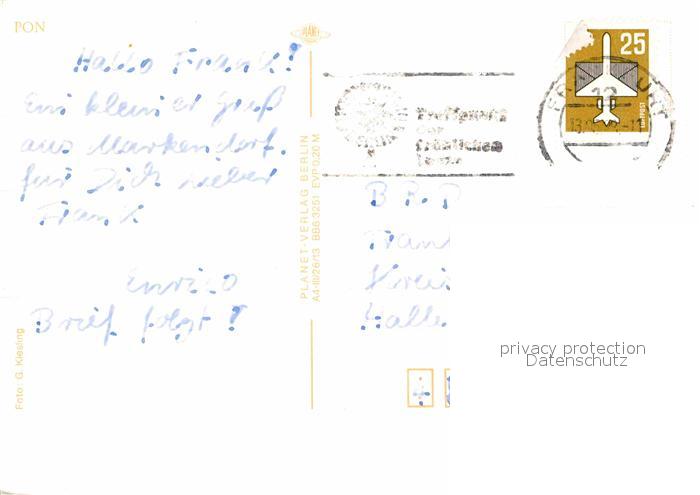 PON
Hallo Frank!
Ein kleiner Gruß
aus Markendorf.
für Dich lieber
Frank
Enrico
Brief folgt!
Foto: G. Kiesling
PLANET-VERLAG BERLIN
A4-III/26/13 BBS 3251 EVP 0,20 M
Treffpunkt
der
fröhlichen
25
Luftpost
12
B R D
Halle
privacy protection
Datenschutz